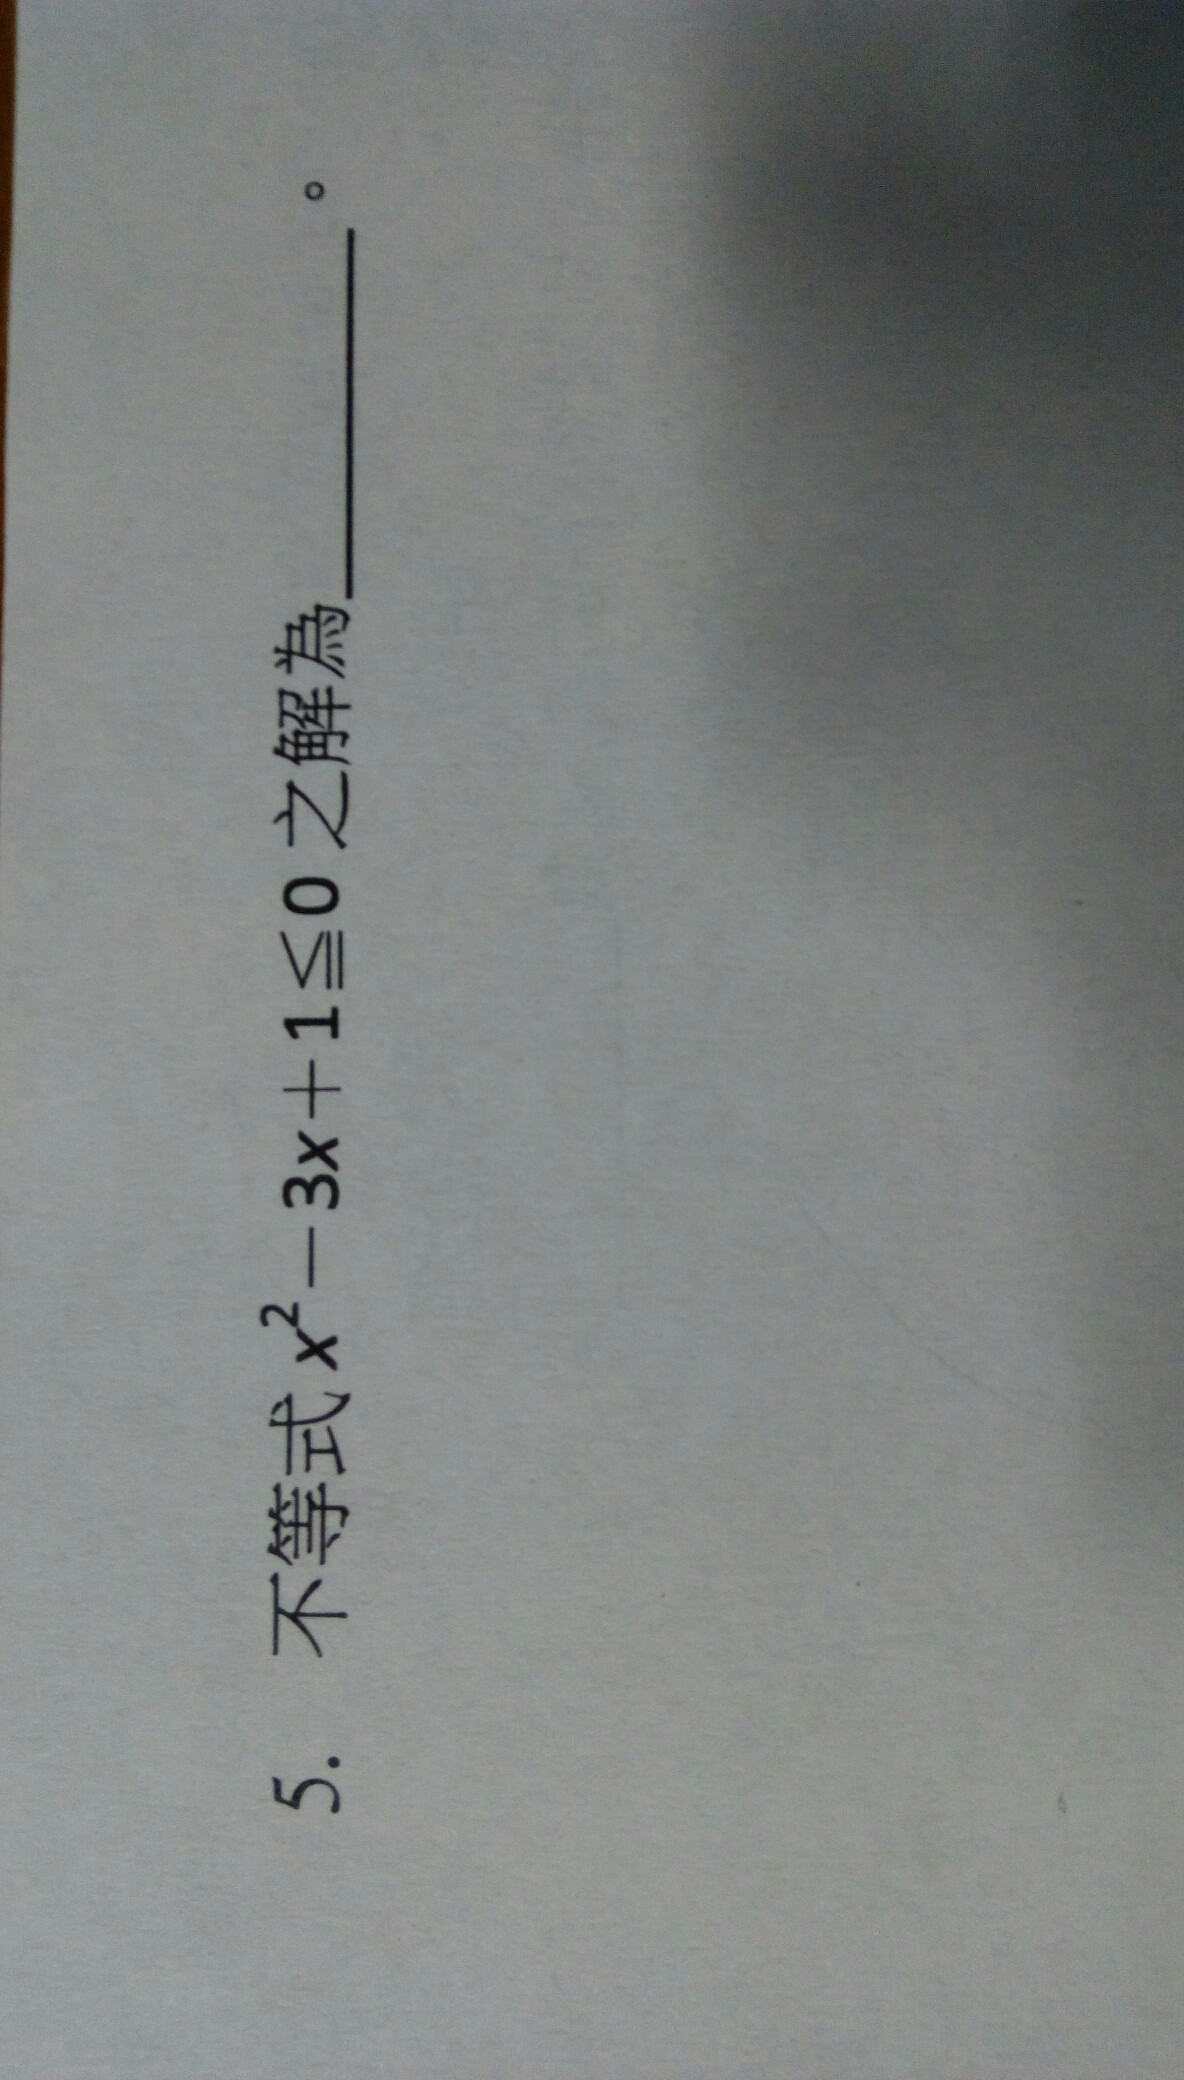 5. 不等式 x²－3x＋1≦0 之解為__________。